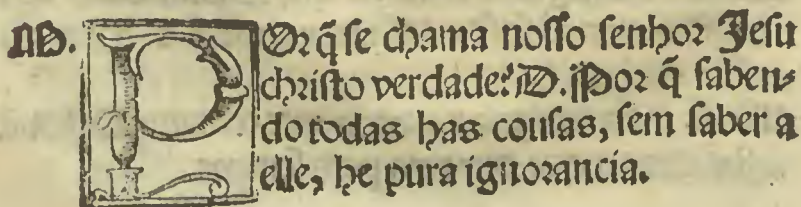 M. POr q̃ se chama nosso senhor Jesu
christo verdade? D. Por q̃ saben-
do todas has cousas, sem saber a
elle, he pura ignorancia.